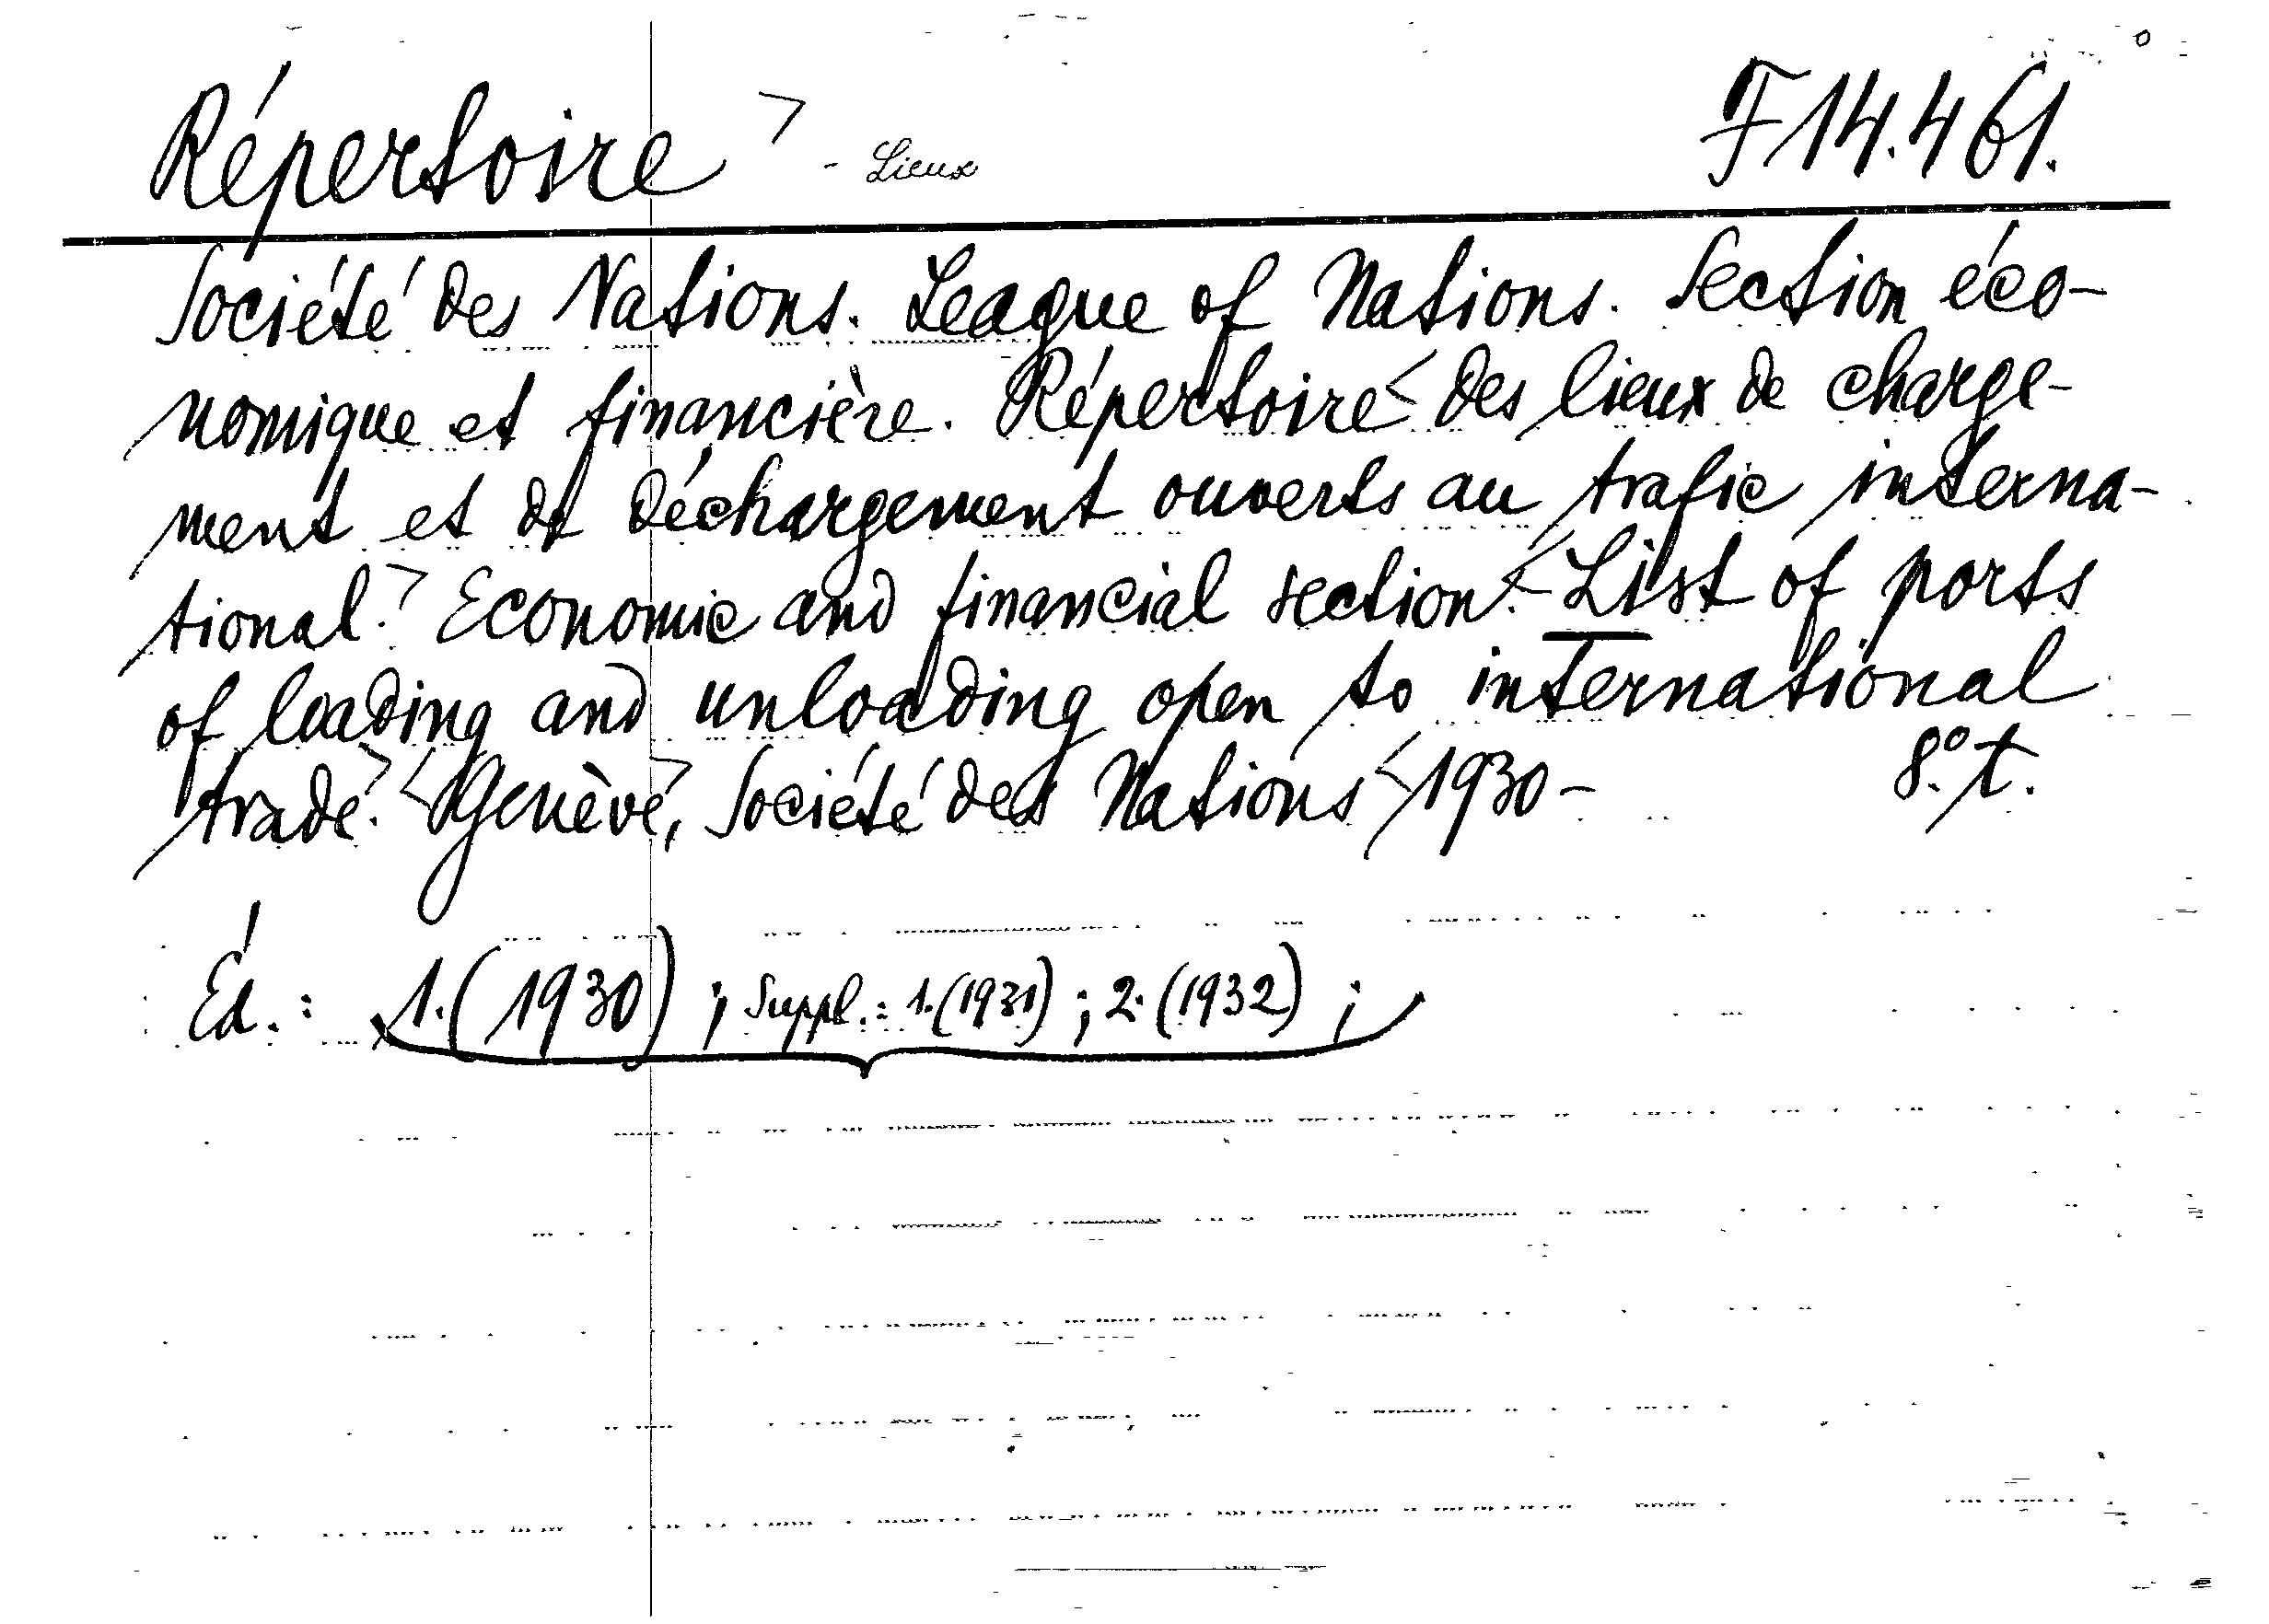 Répertoire > - Lieux F 14.461.
Société des Nations. League of Nations. Section éco-
nomique et financière. Répertoire < des lieux de charge-
ment et de déchargement ouverts au trafic interna-
tional.> Economic and financial section.< - List of ports
of loading and unloading open to international
trade.> < Genève>, Société des Nations < 1930 - 8.° t.
Éd.: 1.(1930); Suppl.: 1.(1931); 2.(1932);